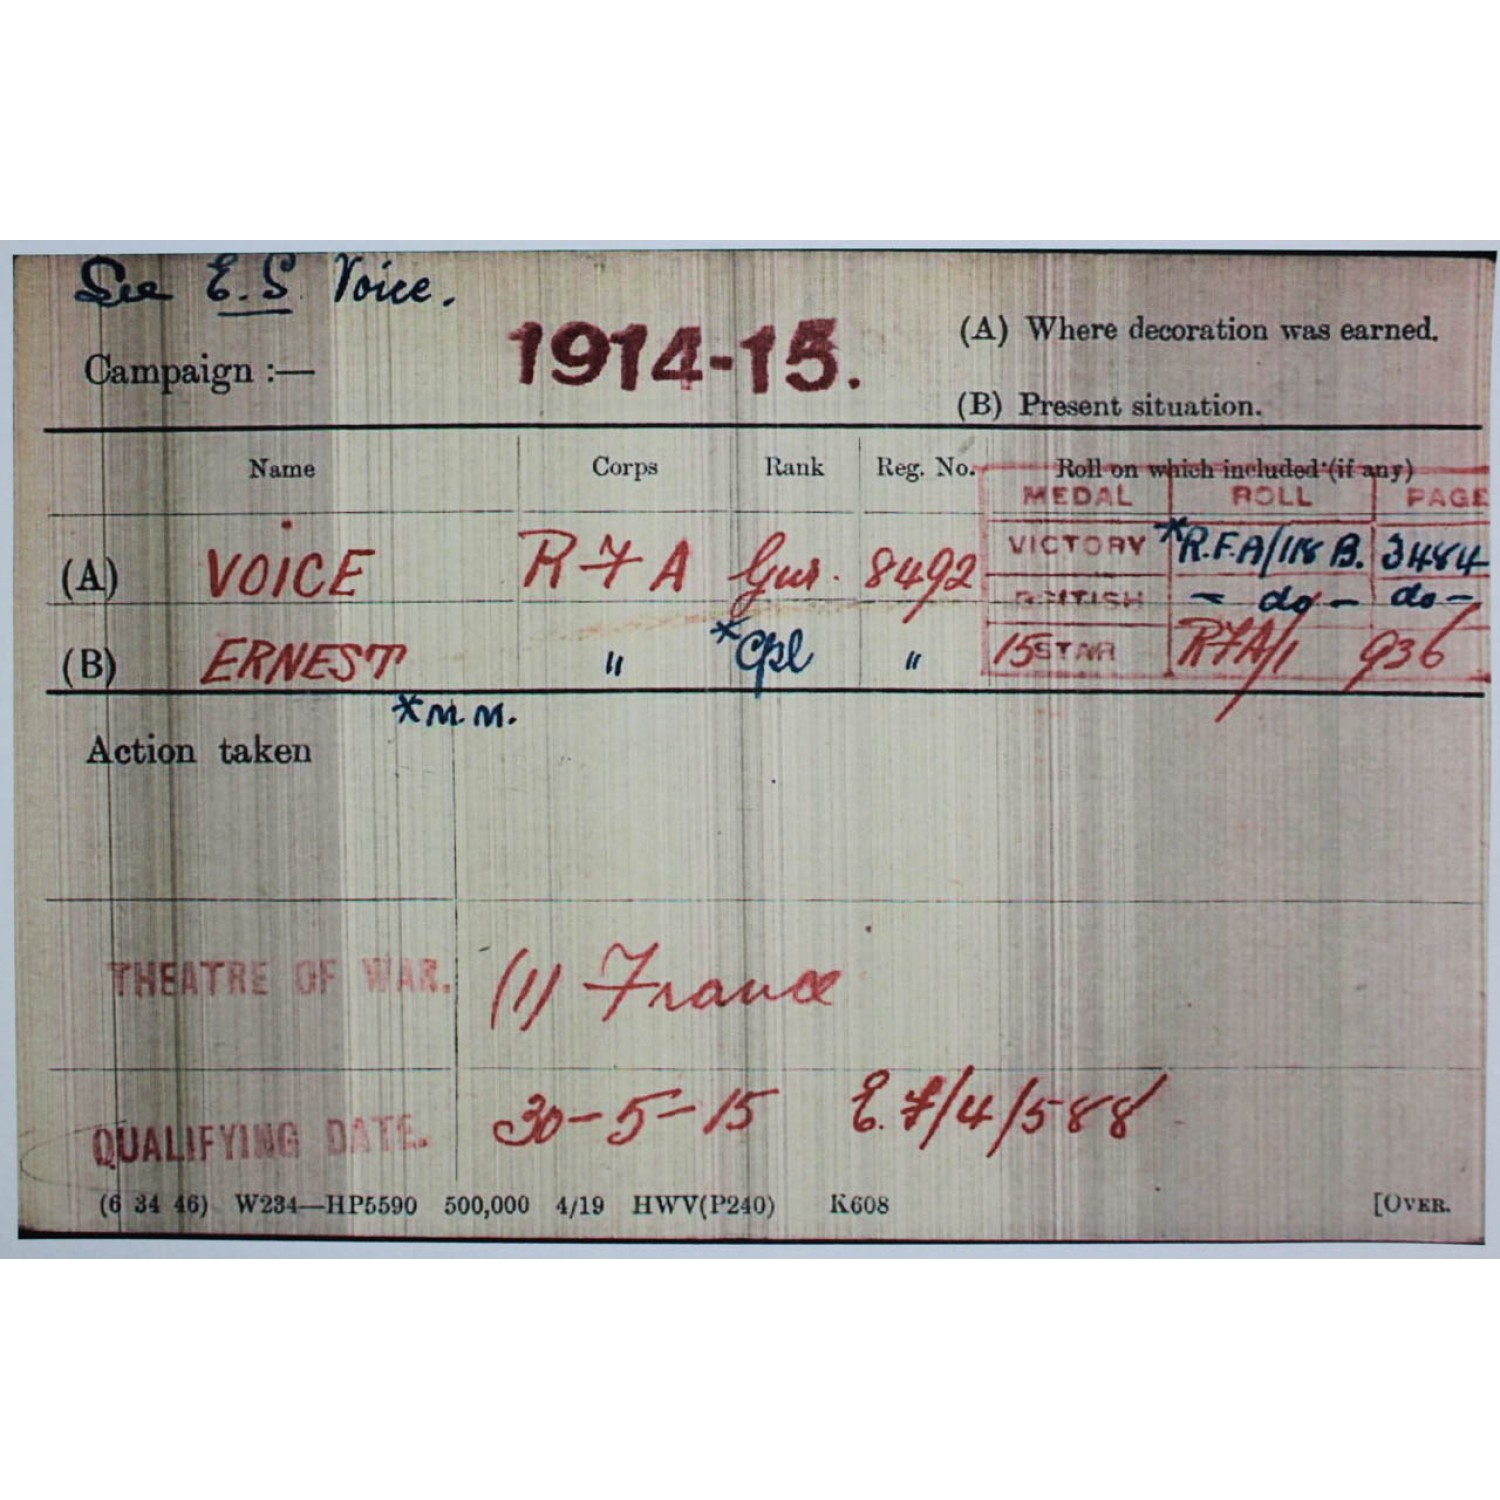 See E.S Voice.
Campaign :— 1914-15. (A) Where decoration was earned.
(B) Present situation.
Name Corps Rank Reg. No. Roll on which included (if any)
MEDAL ROLL PAGE
(A) VOICE R F A Gnr. 8492 VICTORY *R.F.A/118 B. 3484
BRITISH - do - do -
(B) ERNEST " *Cpl " 15 STAR RFA/1 936
*M.M.
Action taken
THEATRE OF WAR. (1) France
QUALIFYING DATE. 30-5-15 E.F/4/588
(6 34 46) W234—HP5590 500,000 4/19 HWV(P240) K608 [OVER.